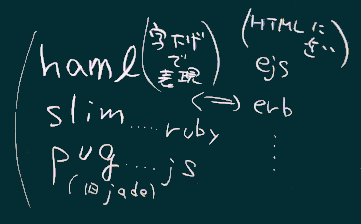 haml (字下げで表現) ejs (HTMLに近い)
slim ..... ruby <=> erb
pug ..... js
(旧jade)